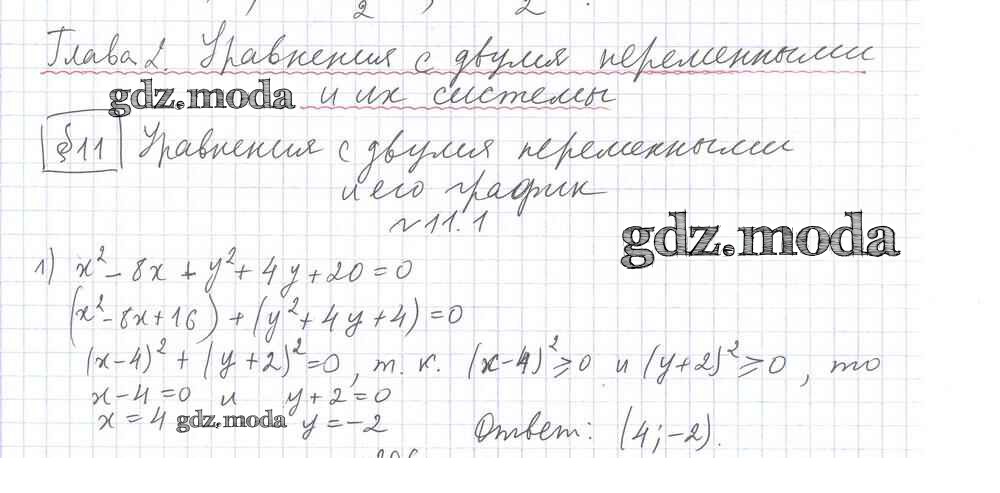 Глава 2. Уравнения с двумя переменными
gdz.moda и их системы
§11 Уравнения с двумя переменными
и его график
gdz.moda
№11.1
1) x² - 8x + y² + 4y + 20 = 0
(x² - 8x + 16) + (y² + 4y + 4) = 0
(x-4)² + (y+2)² = 0, т.к. (x-4)² ⩾ 0 и (y+2)² ⩾ 0, то
x-4 = 0 и y+2 = 0
x = 4 gdz.moda y = -2 Ответ: (4; -2).